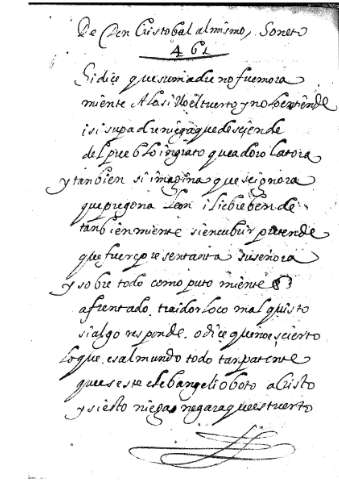 De Don Cristobal al mismo, Soneto
461
Si dice que su madre no fue mora
miente
i si su padre niega que deciende
del pueblo ingrato que adoro la tora
y tanbien si imagina que se ignora
que pregona
tanbien miente si encubrir pretende
que fuerço
y sobre todo como puto miente
afrentado, traidor loco mal quisto
si algo responde, o dice que no es cierto
lo que es al mundo todo tan patente
que es este ebangelio boto a Cristo
y si esto niega negara que es tuerto